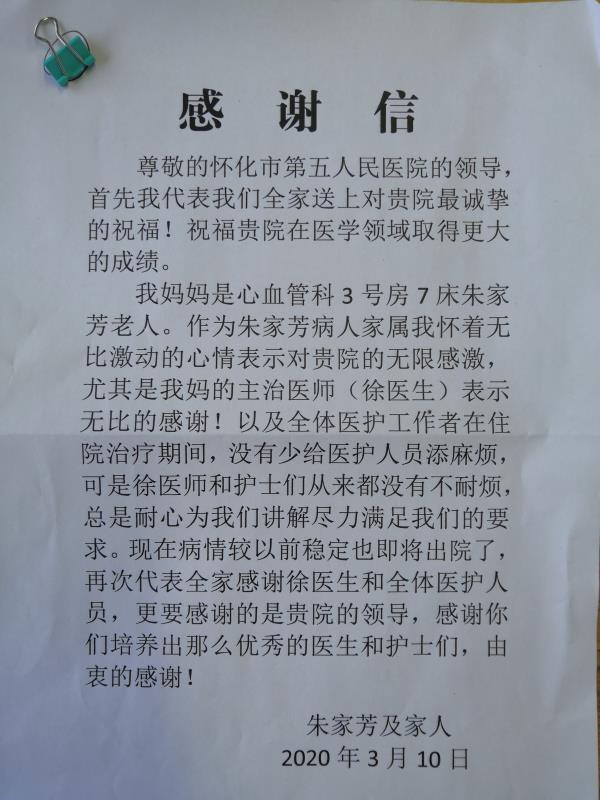 感 谢 信
尊敬的怀化市第五人民医院的领导，
首先我代表我们全家送上对贵院最诚挚
的祝福！祝福贵院在医学领域取得更大
的成绩。
我妈妈是心血管科 3 号房 7 床朱家
芳老人。作为朱家芳病人家属我怀着无
比激动的心情表示对贵院的无限感激，
尤其是我妈的主治医师（徐医生）表示
无比的感谢！以及全体医护工作者在住
院治疗期间，没有少给医护人员添麻烦，
可是徐医师和护士们从来都没有不耐烦，
总是耐心为我们讲解尽力满足我们的要
求。现在病情较以前稳定也即将出院了，
再次代表全家感谢徐医生和全体医护人
员，更要感谢的是贵院的领导，感谢你
们培养出那么优秀的医生和护士们，由
衷的感谢！
朱家芳及家人
2020 年 3 月 10 日